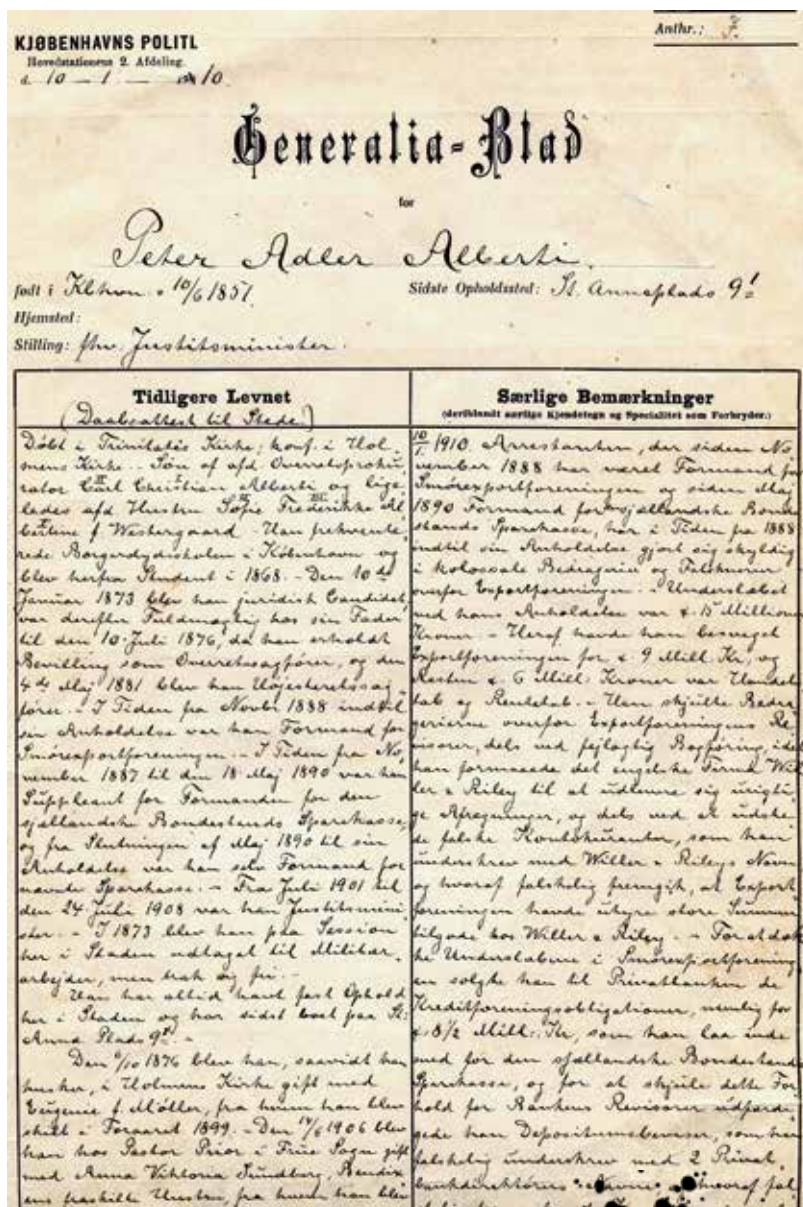 KJØBENHAVNS POLITI
Hovedstationens 2. Afdeling.
d. 10 - 1 - 1910.
Anthr.: F.
Generalia-Blad
for
Peter Adler Alberti.
født i Kbhvn. d 10/6 1851.
Sidste Opholdssted: St. Anneplads 9
Hjemsted:
Stilling: fhv. Justitsminister.
Tidligere Levnet
(Daabsattest til Stede.)
Døbt i Trinitatis Kirke; konf. i Hol-
mens Kirke. - Søn af afd Overretsproku-
rator Carl Christian Alberti og lige-
ledes afd Hustru Sofie Frederikke Al-
bertine f. Westergaard. - Han frekvente-
rede Borgerdydsskolen i København og
blev herfra Student i 1868. - Den 10de
Januar 1873 blev han juridisk Candidat,
var derefter Fuldmægtig hos sin Fader
til den 10. Juli 1876, da han erholdt
Bevilling som Overretssagfører, og den
4de Maj 1881 blev han Højesteretssag-
fører. - I Tiden fra Novbr. 1888 indtil
sin Anholdelse var han Formand for
Smörexportforeningen. - I Tiden fra No-
vember 1887 til den 18. Maj 1890 var han
Suppleant for Formanden for den
sjællandske Bondestands Sparekasse,
og fra Slutningen af Maj 1890 til sin
Anholdelse var han selv Formand for
nævnte Sparekasse. - Fra Juli 1901 til
den 24 Juli 1908 var han Justitsmini-
ster. - I 1873 blev han paa Session
her i Staden udtaget til Militær-
arbejder, men trak sig fri. -
Han har altid havt fast Ophold
her i Staden og har sidst boet paa St.
Anna Plads 9
Den /10 1876 blev han, saavidt han
husker, i Holmens Kirke gift med
Eugenie f. Møller, fra hvem han blev
skilt i Foraaret 1899. - Den /6 1906 blev
han hos Pastor Prior i Frue Sogn gift
med Anna Viktoria Sundberg, Bendix-
ens fraskilte Hustru, fra hvem han blev
Særlige Bemærkninger
(deriblandt særlige Kjendetegn og Specialitet som Forbryder.)
10/1 1910. Arrestanten, der siden No-
vember 1888 har været Formand for
Smörexportforeningen og siden Maj
1890 Formand for sjællandske Bonde-
stands Sparekasse, har i Tiden fra 1888
indtil sin Anholdelse gjort sig skyldig
i kolossale Bedragerier og Falsknerier
overfor Exportforeningen. - Underslæbet
ved hans Anholdelse var c. 15 Millioner
Kroner. - Heraf havde han besveget
Exportforeningen for c. 9 Mill. Kr., og
Resten c. 6 Mill. Kroner var Handels-
tab og Rentetab. - Han skjulte Bedra-
gerierne overfor Exportforeningens Re-
visorer, dels ved fejlagtig Bogføring, idet
han formaaede det engelske Firma Wil-
ler & Riley til at udlevere sig urigti-
ge Afregninger, og dels ved at udste-
de falske Kontokuranter, som han
underskrev med Willer & Rileys Navn
og hvoraf falskelig fremgik, at Export-
foreningen havde uhyre store Summer
tilgode hos Willer & Riley. - For at dæk-
ke Underslæberne i Smörexportforening-
en solgte han til Privatbanken de
Kreditforeningsobligationer, nemlig for
c. 8½ Mill. Kr., som han laa inde
med for den sjællandske Bondestands
Sparekasse, og for at skjule dette For-
hold for Bankens Revisorer udfærdi-
gede han Depositumsbeviser, som han
falskelig underskrev med 2 Privat-
bankdirektörers Navne, hvoraf fal-